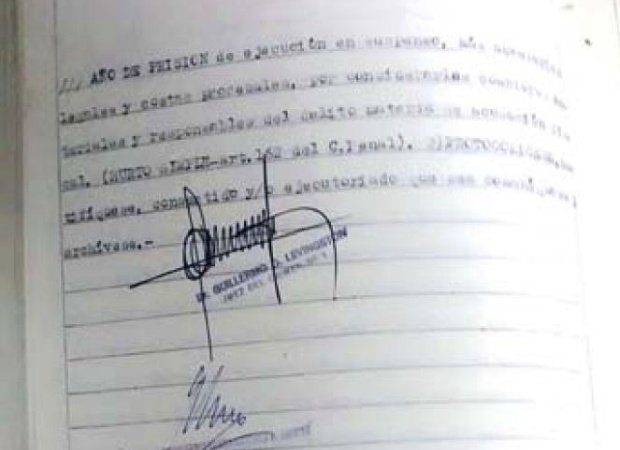 /// AÑO DE PRISION de ejecución en suspenso, más accesorias
legales y costas procesales, por considerarlos coautores ma
teriales y responsables del delito materia de acusación fis
cal. (HURTO SIMPLE-art.162 del C.Penal). 2) PROTOCOLICESE,
notifíquese, consentido y/o ejecutoriado que sea comuníquese y
archívese.-
Dr. GUILLERMO LEVINGSTON
JUEZ DEL